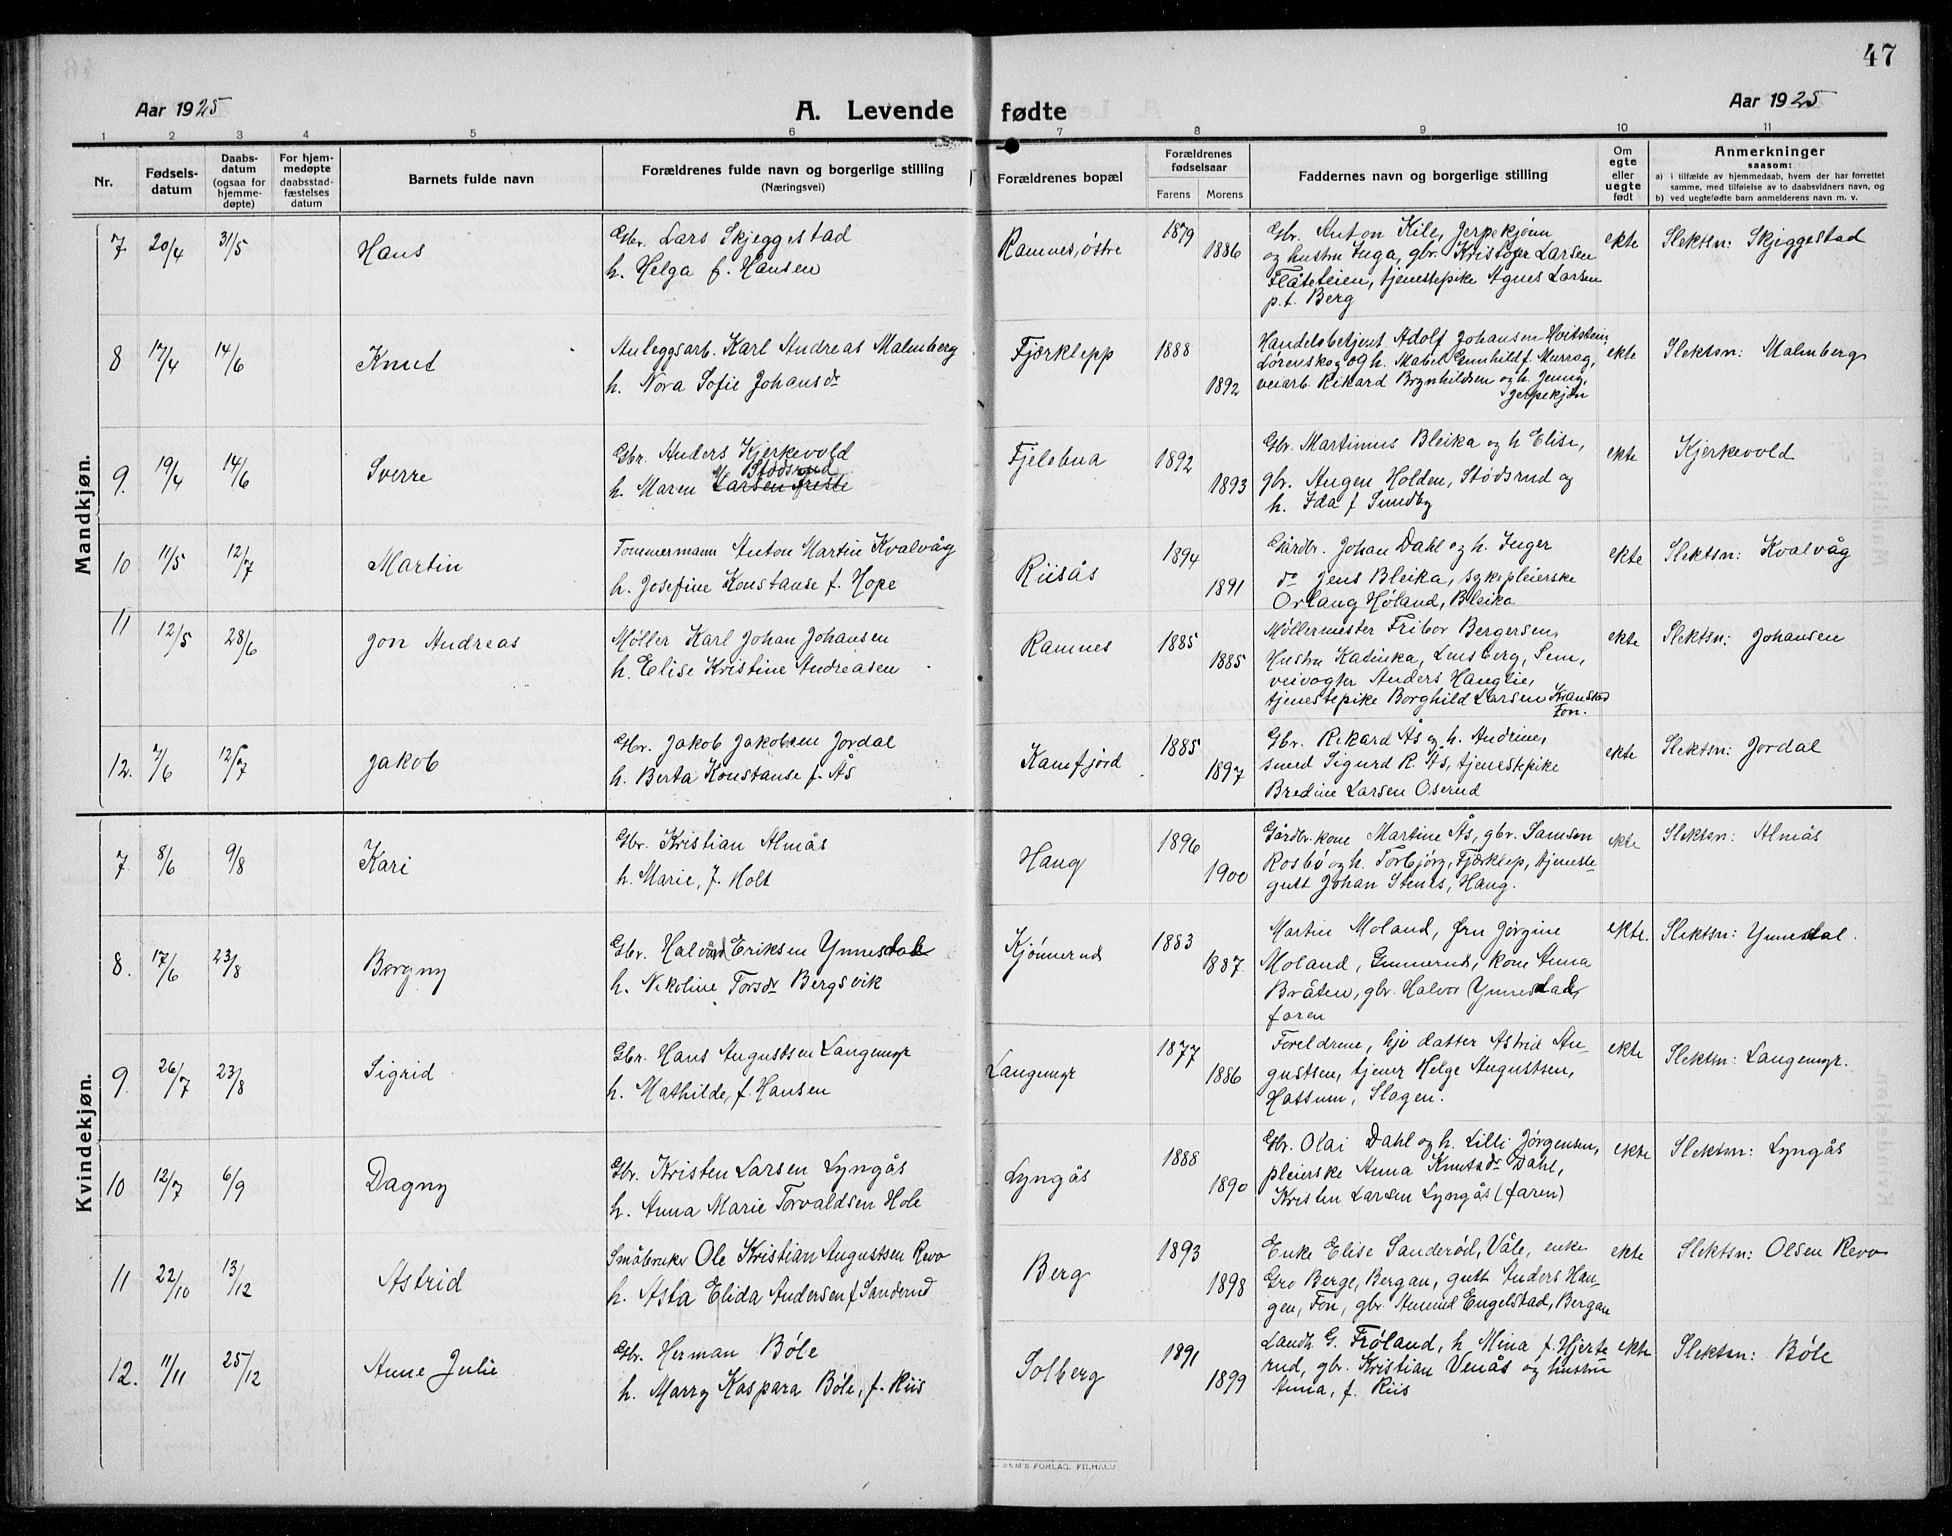 47
Aar 1925
A. Levende fødte
Aar 1925
1 2 3 4 5 6 7 8 9 10 11
Nr.
Fødsels-
datum
Daabs-
datum
(ogsaa for
hjemme-
døpte)
For hjem-
medøpte
daabsstad-
fæstelses
datum
Barnets fulde navn
Forældrenes fulde navn og borgerlige stilling
(Næringsvei)
Forældrenes bopæl
Forældrenes
fødselsaar
Farens Morens
Faddernes navn og borgerlige stilling
Om
egte
eller
uegte
født
Anmerkninger
saasom:
a) i tilfælde av hjemmedaab, hvem der har forrettet
samme, med tilføielse av to daabsvidners navn, og
b) ved uegtefødte barn anmelderens navn m. v.
Mandkjøn.
7 20/4 31/5 Hans
Gbr. Lars Skjeggestad
h. Helga f. Hansen
Ramnes, østre 1879 1886
Gbr. Anton Kile, Jerpekjønn
og hustru Inga, gbr. Kristofer Larsen
Flåteteien, tjenestepike Agnes Larsen
p.t. Berg
ekte Slektsn: Skjeggestad
8 17/4 14/6 Knut
Anleggsarb. Karl Andreas Malmberg
h. Nora Sofie Johansdr
Fjærklepp 1888 1892
Handelsbetjent Adolf Johansen Hvitstein,
Lørenskog og h. Mabel Gunhild f. Murrag,
veiarb. Rikard Brynhildsen og h. Jenny,
Jerpekjøn
ekte Slektsn: Malmberg
9. 19/4 14/6 Sverre
Gbr. Anders Kjerkevold
Stødsrud
h. Maren Larsen
Fjelebua 1892 1893
Gbr. Martinus Bleika og h Elise,
gbr. Augen Holden, Stødsrud og
h. Ida f Sundby
ekte Kjerkevold
10 11/5 12/7 Martin
Tømmermann Anton Martin Kvalvåg
h. Josefine Konstanse f. Hope
Riisås 1894 1891
Gårdbr. Johan Dahl og h. Inger
do Jens Bleika, sykepleierske
Orlaug Høland, Bleika
ekte Slektsn: Kvalvåg
11 12/5 28/6 Jon Andreas
Møller Karl Johan Johansen
h. Elise Kristine Andreasen
Ramnes 1885 1885
Møllermester Fribor Bergersen,
Hustru Katinka, Lensberg, Sem,
veivogter Anders Hauglie,
tjenestepike Borghild Larsen Kvanstad
Fon.
ekte Slektsn: Johansen
12. 7/6 12/7 Jakob
Gbr. Jakob Jakobsen Jordal
h. Berta Konstanse f. Ås
Kamfjord 1885 1897
Gbr. Rikard Ås og h. Andrine,
smed Sigurd R. Ås, tjenestepike
Bredine Larsen Oserud
ekte Slektsn: Jordal
Kvindekjøn.
7 8/6 9/8 Kari
Gbr. Kristian Almås
h. Marie, f. Holt
Haug 1896 1900
Gårdbr.kone Martine Ås, gbr. Samson
Rosbø og h. Torbjørg, Fjærklep, tjeneste-
gutt Johan Stenes, Haug.
ekte Slektsn: Almås
8. 17/6 23/8 Borgny
Gbr. Halvard Eriksen Ynnesdal
h. Nikoline Torsdr Bergsvik
Kjønnerud 1883 1887
Martin Moland, fru Jørgine
Moland, Gunnerud, kone Anna
Bråten, gbr. Halvor Ynnesdal,
faren
ekte. Slektsn: Ynnesdal.
9. 26/7 23/8 Sigrid
Gbr. Hans Augustsen Langemyr
h. Mathilde, f. Hansen
Langemyr 1877 1886
Foreldrene, hjv datter Astrid Au-
gustsen, tjener Helge Augustsen,
Hassum, Slagen.
ekte Slektsn: Langemyr.
10 12/7 6/9 Dagny
Gbr. Kristen Larsen Lyngås
h. Anna Marie Torvaldsen Hole
Lyngås 1888 1890
Gbr. Olai Dahl og h. Lilli Jørgensen,
pleierske Anna Knutsdr Dahl,
Kristen Larsen Lyngås (faren)
ekte Slektsn: Lyngås
11 22/10 13/12 Astrid
Småbruker Ole Kristian Augustsen Revo
h. Asta Elida Andersen f Sanderud
Berg 1893 1898
Enke Elise Sanderød, Våle, enke
Gro Berge, Bergan, gutt Anders Hau-
gen, Fon, gbr. Amund Engelstad, Bergan
ekte Slektsn: Olsen Revo
12. 11/11 25/12 Anne Julie
Gbr. Herman Bøle
h. Marry Kaspara Bøle, f. Riis
Solberg 1891 1899
Landh. G. Frøland, h Mina f. Hjerte
rud, gbr. Kristian Venås og hustru
Anna, f. Riis
ekte Slektsn: Bøle
SEM'S FORLAG, FR.HALD